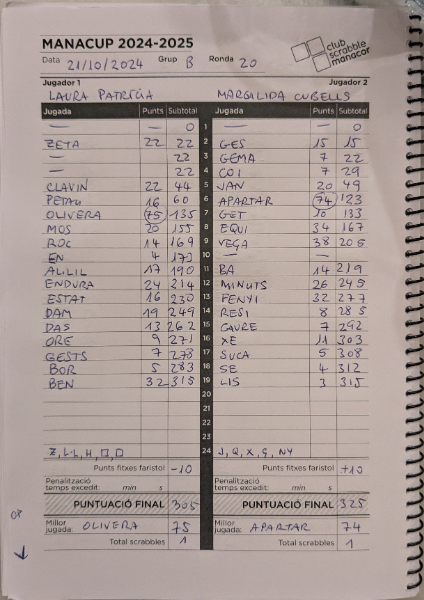 MANACUP 2024-2025
club scrabble manacor
Data 21/10/2024 Grup B Ronda 20
Jugador 1 Jugador 2
LAURA PATRÍCIA MARGALIDA CUBELLS
Jugada Punts Subtotal Jugada Punts Subtotal
— — 0 1 — — 0
ZETA 22 22 2 GES 15 15
— 22 3 GEMA 7 22
— 22 4 COI 7 29
CLAVIN 22 44 5 JAN 20 49
PETAU 16 60 6 APARTAR 74 123
OLIVERA 75 135 7 GET 10 133
MOS 20 155 8 EQUI 34 167
ROC 14 169 9 VEÇA 38 205
EN 4 173 10 — —
AL·LIL 17 190 11 BA 14 219
ENDURA 24 214 12 MINUTS 26 245
ESTAT 16 230 13 FENYI 32 277
DAM 19 249 14 RESI 8 285
DAS 13 262 15 CAURE 7 292
ORE 9 271 16 XE 11 303
GESTS 7 278 17 SUCA 5 308
BOR 5 283 18 SE 4 312
BEN 32 315 19 LIS 3 315
20
21
22
23
Z, L·L, H, □, □ 24 J, Q, X, Ç, NY
Punts fitxes faristol -10 Punts fitxes faristol +10
Penalització temps excedit: min s Penalització temps excedit: min s
PUNTUACIÓ FINAL 305 PUNTUACIÓ FINAL 325
Millor jugada: OLIVERA 75 Millor jugada: APARTAR 74
Total scrabbles 1 Total scrabbles 1